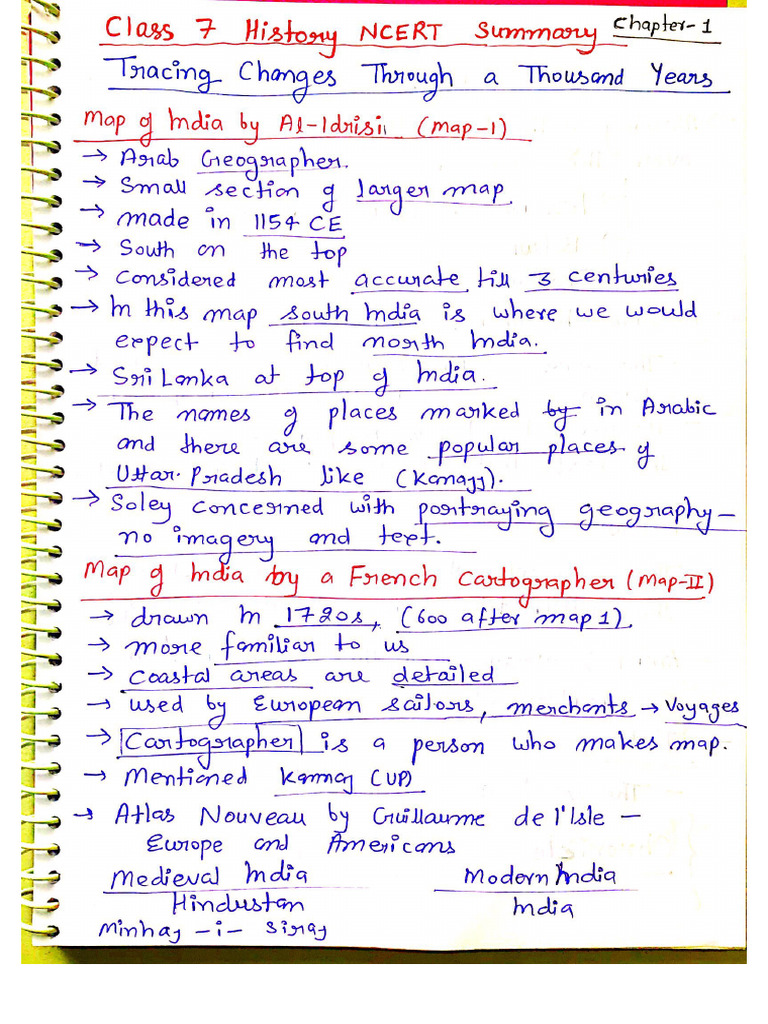 Class 7 History NCERT Summary Chapter-1
Tracing Changes Through a Thousand Years
Map of India by Al-Idrisi (Map-1)
→ Arab Geographer.
→ Small section of larger map.
→ made in 1154 CE
→ South on the top
→ Considered most accurate till 3 centuries
→ In this map south India is where we would
expect to find north India.
→ Sri Lanka at top of India.
→ The names of places marked by in Arabic
and there are some popular places of
Uttar Pradesh like (Kanauj).
→ Soley concerned with portraying geography-
no imagery and text.
Map of India by a French Cartographer (Map-II)
→ drawn in 1720s, (600 after map 1).
→ more familiar to us
→ Coastal areas are detailed
→ used by European sailors, merchants → Voyages
→ Cartographer is a person who makes map.
→ Mentioned Kannoj (UP)
→ Atlas Nouveau by Guillaume de l'Isle -
Europe and Americans
Medieval India Modern India
Hindustan India
Minhaj -i- Siraj